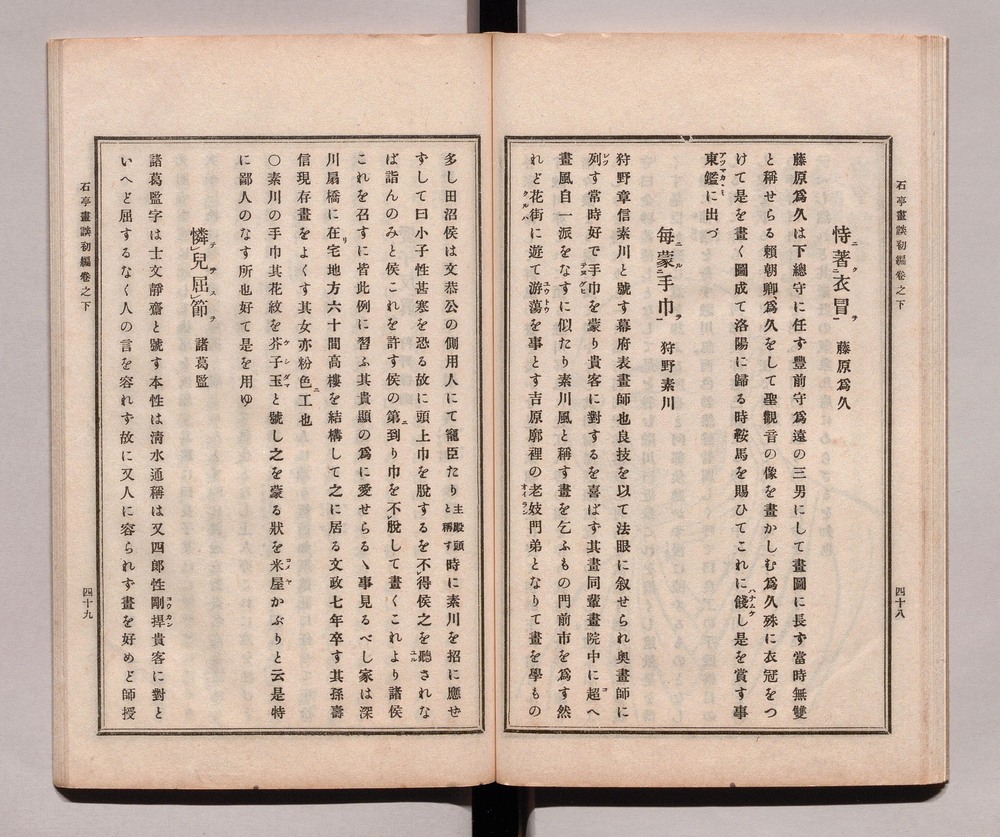 石亭畫談初編卷之下
四十八
恃著衣冒　藤原爲久
藤原爲久は下總守に任す豊前守爲遠の三男にして畫圖に長す當時無雙
と稱せらる賴朝卿爲久をして聖觀音の像を畫かしむ爲久殊に衣冠をつ
けて是を畫く圖成て洛陽に歸る時鞍馬を賜ひてこれに餞し是を賞す事
東鑑に出づ
每蒙手巾　狩野素川
狩野章信素川と號す幕府表畫師也良技を以て法眼に叙せられ奧畫師に
列す常時好で手巾を蒙り貴客に對するを喜ばす其畫同輩畫院中に超へ
畫風自一派をなすに似たり素川風と稱す畫を乞ふもの門前市を爲す然
れど花街に遊て游蕩を事とす吉原廓裡の老妓門弟となりて畫を學もの
多し田沼侯は文恭公の側用人にて寵臣たり主殿頭と稱す時に素川を招に應せ
ずして曰小子性甚寒を恐る故に頭上巾を脫するを不得侯之を聽されな
ば詣んのみと侯これを許す侯の第到り巾を不脫して畫くこれより諸侯
これを召すに皆此例に習ふ其貴顯の爲に愛せらるヽ事見るべし家は深
川扇橋に在宅地方六十間高樓を結構して之に居る文政七年卒す其孫壽
信現存畫をよくす其女亦粉色工也
○素川の手巾其花紋を芥子玉と號し之を蒙る狀を米屋かぶりと云是特
に鄙人のなす所也好て是を用ゆ
憐兒屈節　諸葛監
諸葛監字は士文靜齋と號す本性は淸水通稱は又四郎性剛捍貴客に對と
いへど屈するなく人の言を容れす故に又人に容られす畫を好めど師授
石亭畫談初編卷之下
四十九